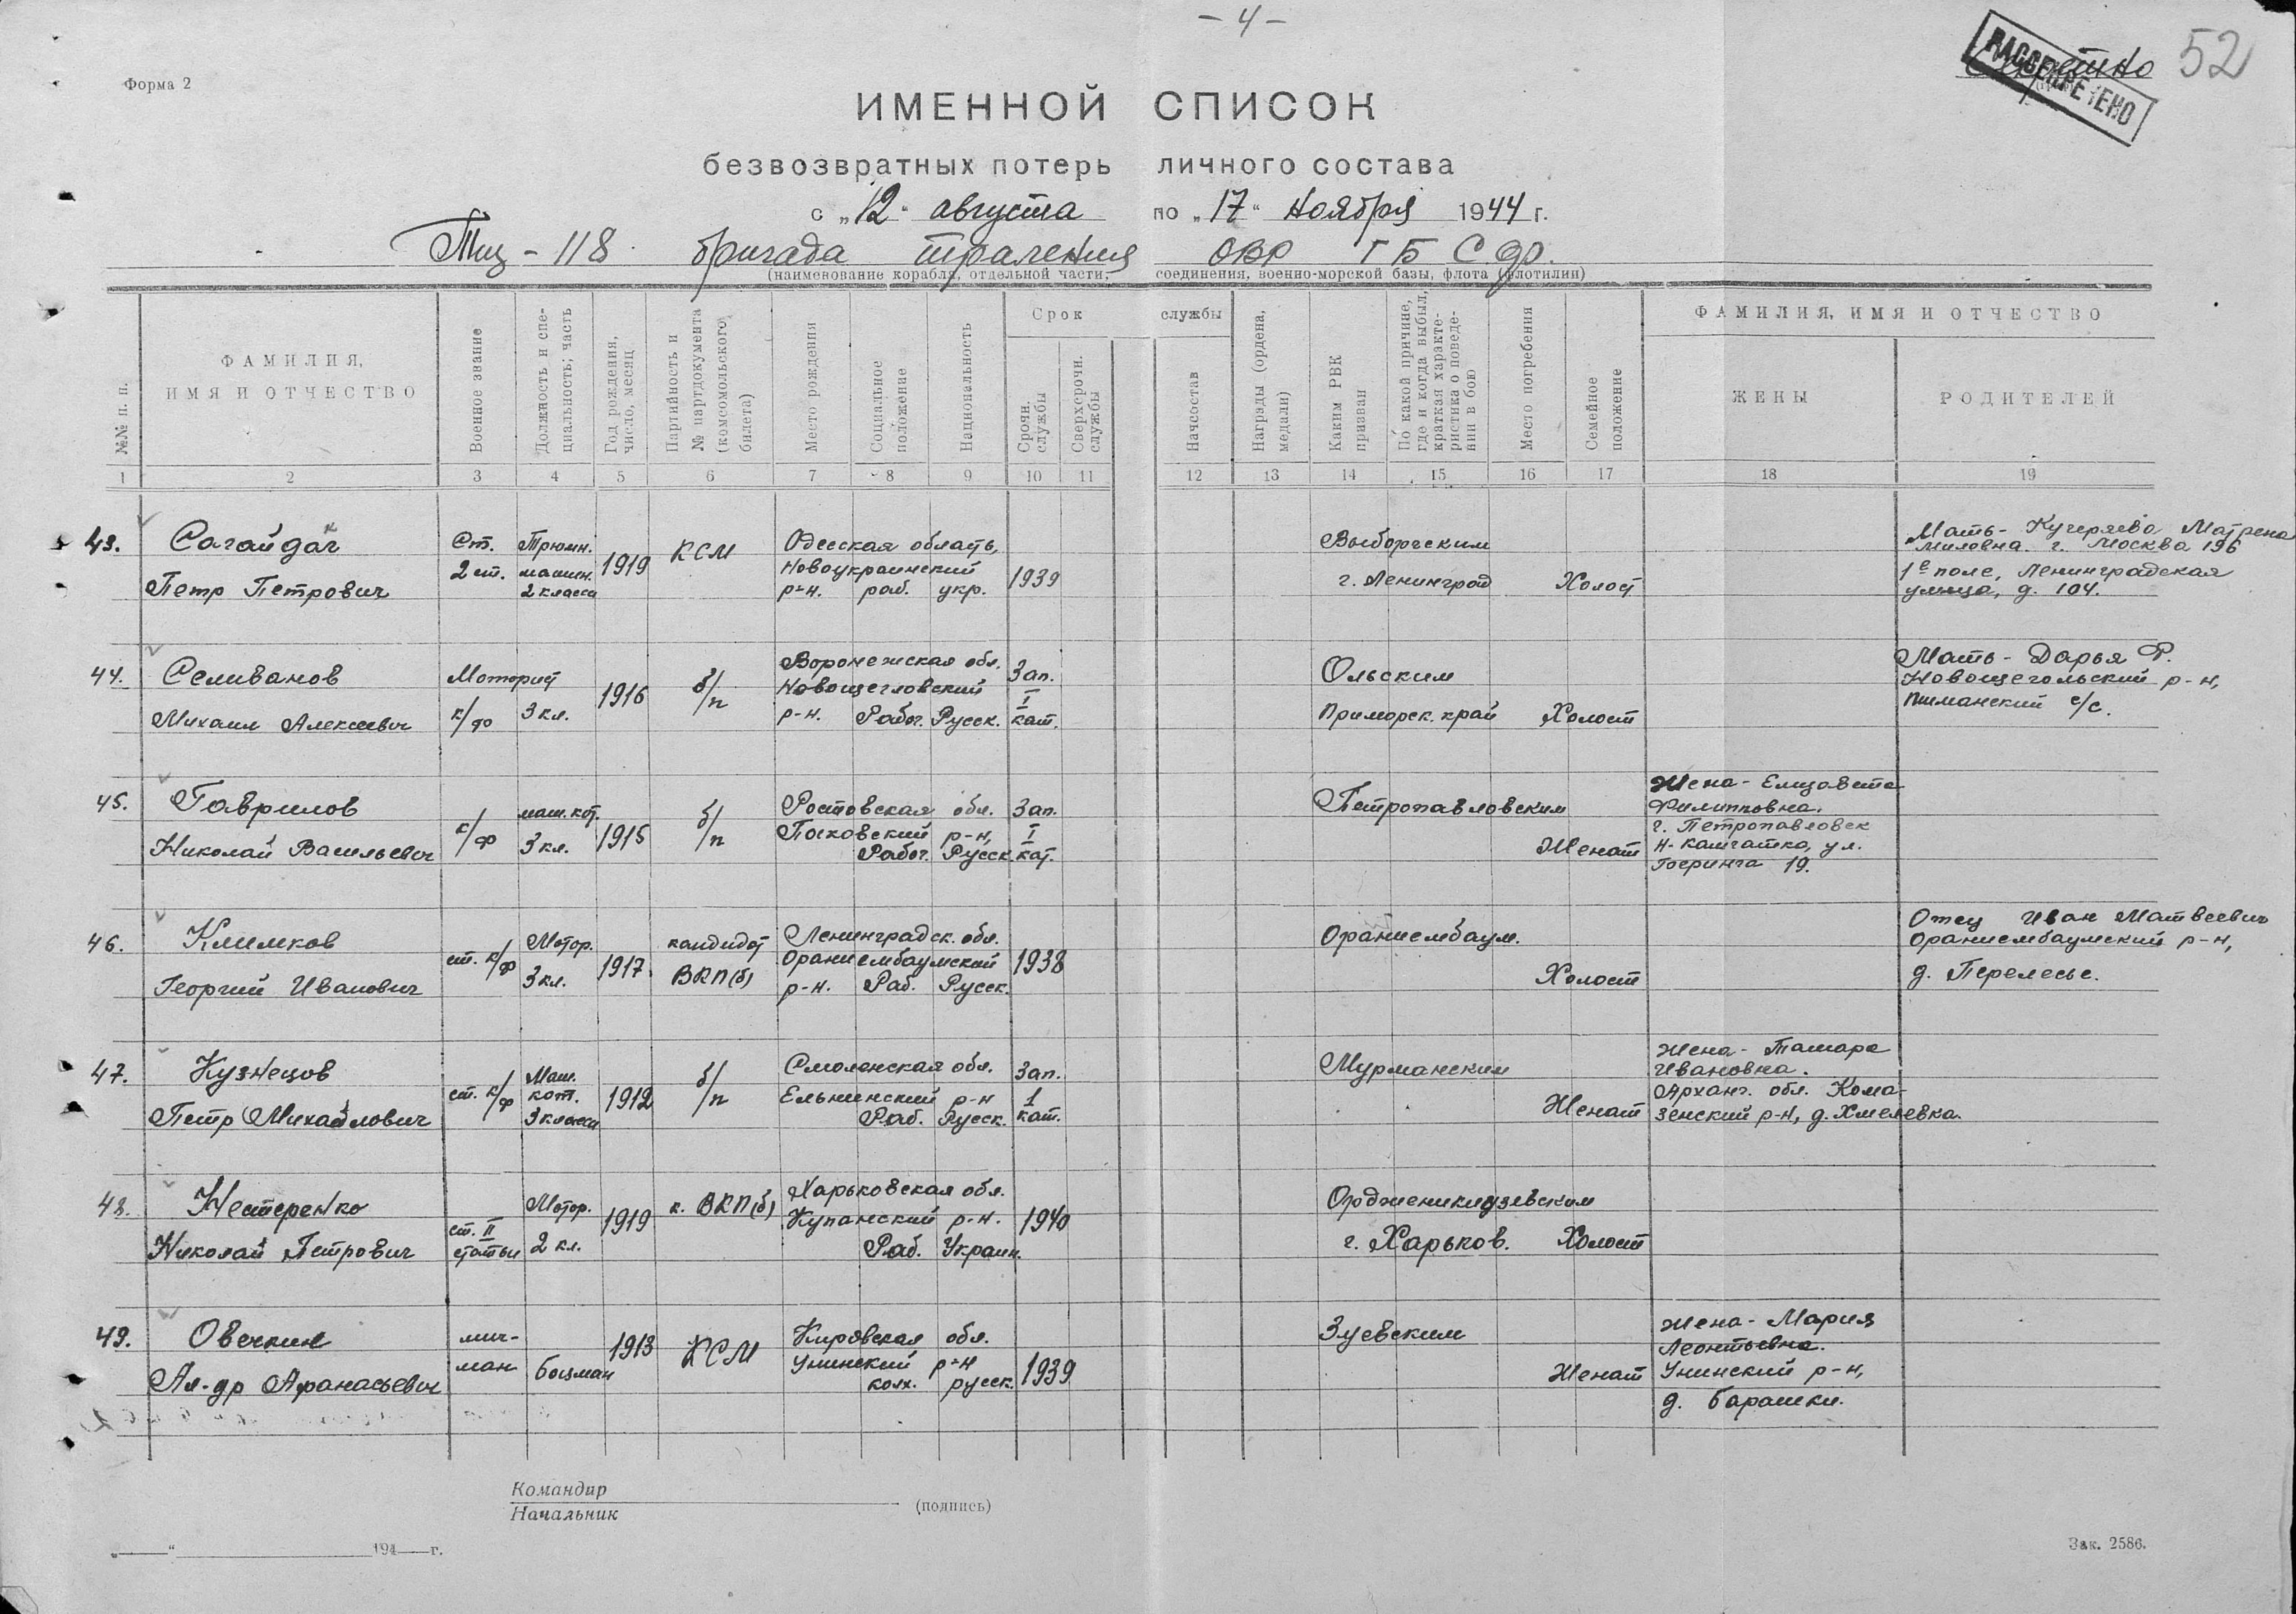 - 4 -
Секретно
РАССЕКРЕЧЕНО
52
Форма 2
ИМЕННОЙ СПИСОК
безвозвратных потерь личного состава
с „12“ августа по „17“ ноября 1944 г.
Тщ - 118 бригада траления ОВР ГБ С.Ф.
(наименование корабля, отдельной части, соединения, военно-морской базы, флота (флотилии)
№№ п. п.
ФАМИЛИЯ,
ИМЯ И ОТЧЕСТВО
Военное звание
Должность и спе-
циальность; часть
Год рождения,
число, месяц
Партийность и
№ партдокумента
(комсомольского
билета)
Место рождения
Социальное
положение
Национальность
Срок службы
Срочн.
службы
Сверхсрочн.
службы
Начсостав
Награды (ордена,
медали)
Каким РВК
призван
По какой причине,
где и когда выбыл,
краткая характе-
ристика о поведе-
нии в бою
Место погребения
Семейное
положение
ФАМИЛИЯ, ИМЯ И ОТЧЕСТВО
ЖЕНЫ
РОДИТЕЛЕЙ
1 2 3 4 5 6 7 8 9 10 11 12 13 14 15 16 17 18 19
43.
Сагайдак
Петр Петрович
Ст.
2 ст.
Трюмн.
машин.
2 класса
1919
КСМ
Одесская область,
Новоукраинский
р-н. раб. укр.
1939
Выборгским
г. Ленинград
Холост
Мать - Кучеряева Матрена
г. Москва 196
1е поле, Ленинградская
улица, д. 104.
44.
Селиванов
Михаил Алексеевич
Моторист
к/ф 3 кл.
1916
б/п
Воронежская обл.
Новощегловский
р-н. Рабоч. Русск.
Зап.
I
кат.
Ольским
Приморск. край
Холост
Мать - Дарья Ф.
Новощегольский р-н,
с/с.
45.
Гаврилов
Николай Васильевич
к/ф
маш. кот.
3 кл.
1915
б/п
Ростовская обл.
р-н,
Рабоч. Русск.
Зап.
I
кат.
Петропавловским
Женат
Жена - Елизавета
Филипповна.
г. Петропавловск
н-Камчатке, ул.
19.
46.
Климков
Георгий Иванович
ст. к/ф
Мотор.
3 кл.
1917
кандидат
ВКП(б)
Ленинградск. обл.
Ораниембаумский
р-н. Раб. Русск.
1938
Ораниембаум.
Холост
Отец Иван Матвеевич
Ораниембаумский р-н,
д. Перелесье.
47.
Кузнецов
Петр Михайлович
ст. к/ф
Маш.
кот.
3 класса
1912
б/п
Смоленская обл.
Ельнинский р-н
Раб. Русск.
Зап.
1
кат.
Мурманским
Женат
Жена - Тамара
Ивановна.
Арханг. обл. Кома-
зенский р-н, д. Хмелевка.
48.
Нестеренко
Николай Петрович
ст. II
статьи
Мотор.
2 кл.
1919
к. ВКП(б)
Харьковская обл.
Купанский р-н.
Раб. Украин.
1940
Орджени­кидзевским
г. Харьков.
Холост
49.
Овечкин
Ал-др Афанасьевич
мич-
ман
боцман
1913
КСМ
Кировская обл.
Унинский р-н
колх. русск.
1939
Зуевским
Женат
Жена - Мария
Леонтьевна.
Унинский р-н,
д. Барашки.
Командир
Начальник
(подпись)
„ “ 194 г.
Зак. 2586.